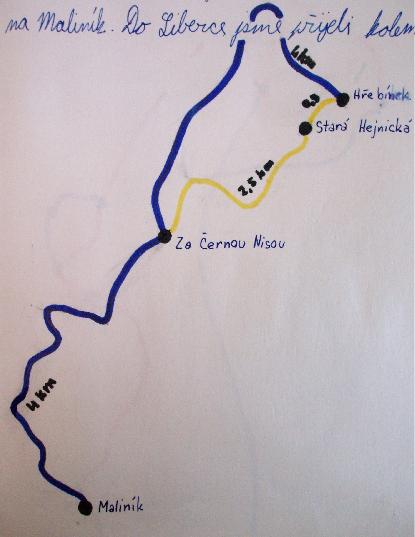 na Maliník. Do Liberce jsme přijeli kolem
4 km
Hřebínek
0,3
Stará Hejnická
2,5 km
Za Černou Nisou
4 km
Maliník